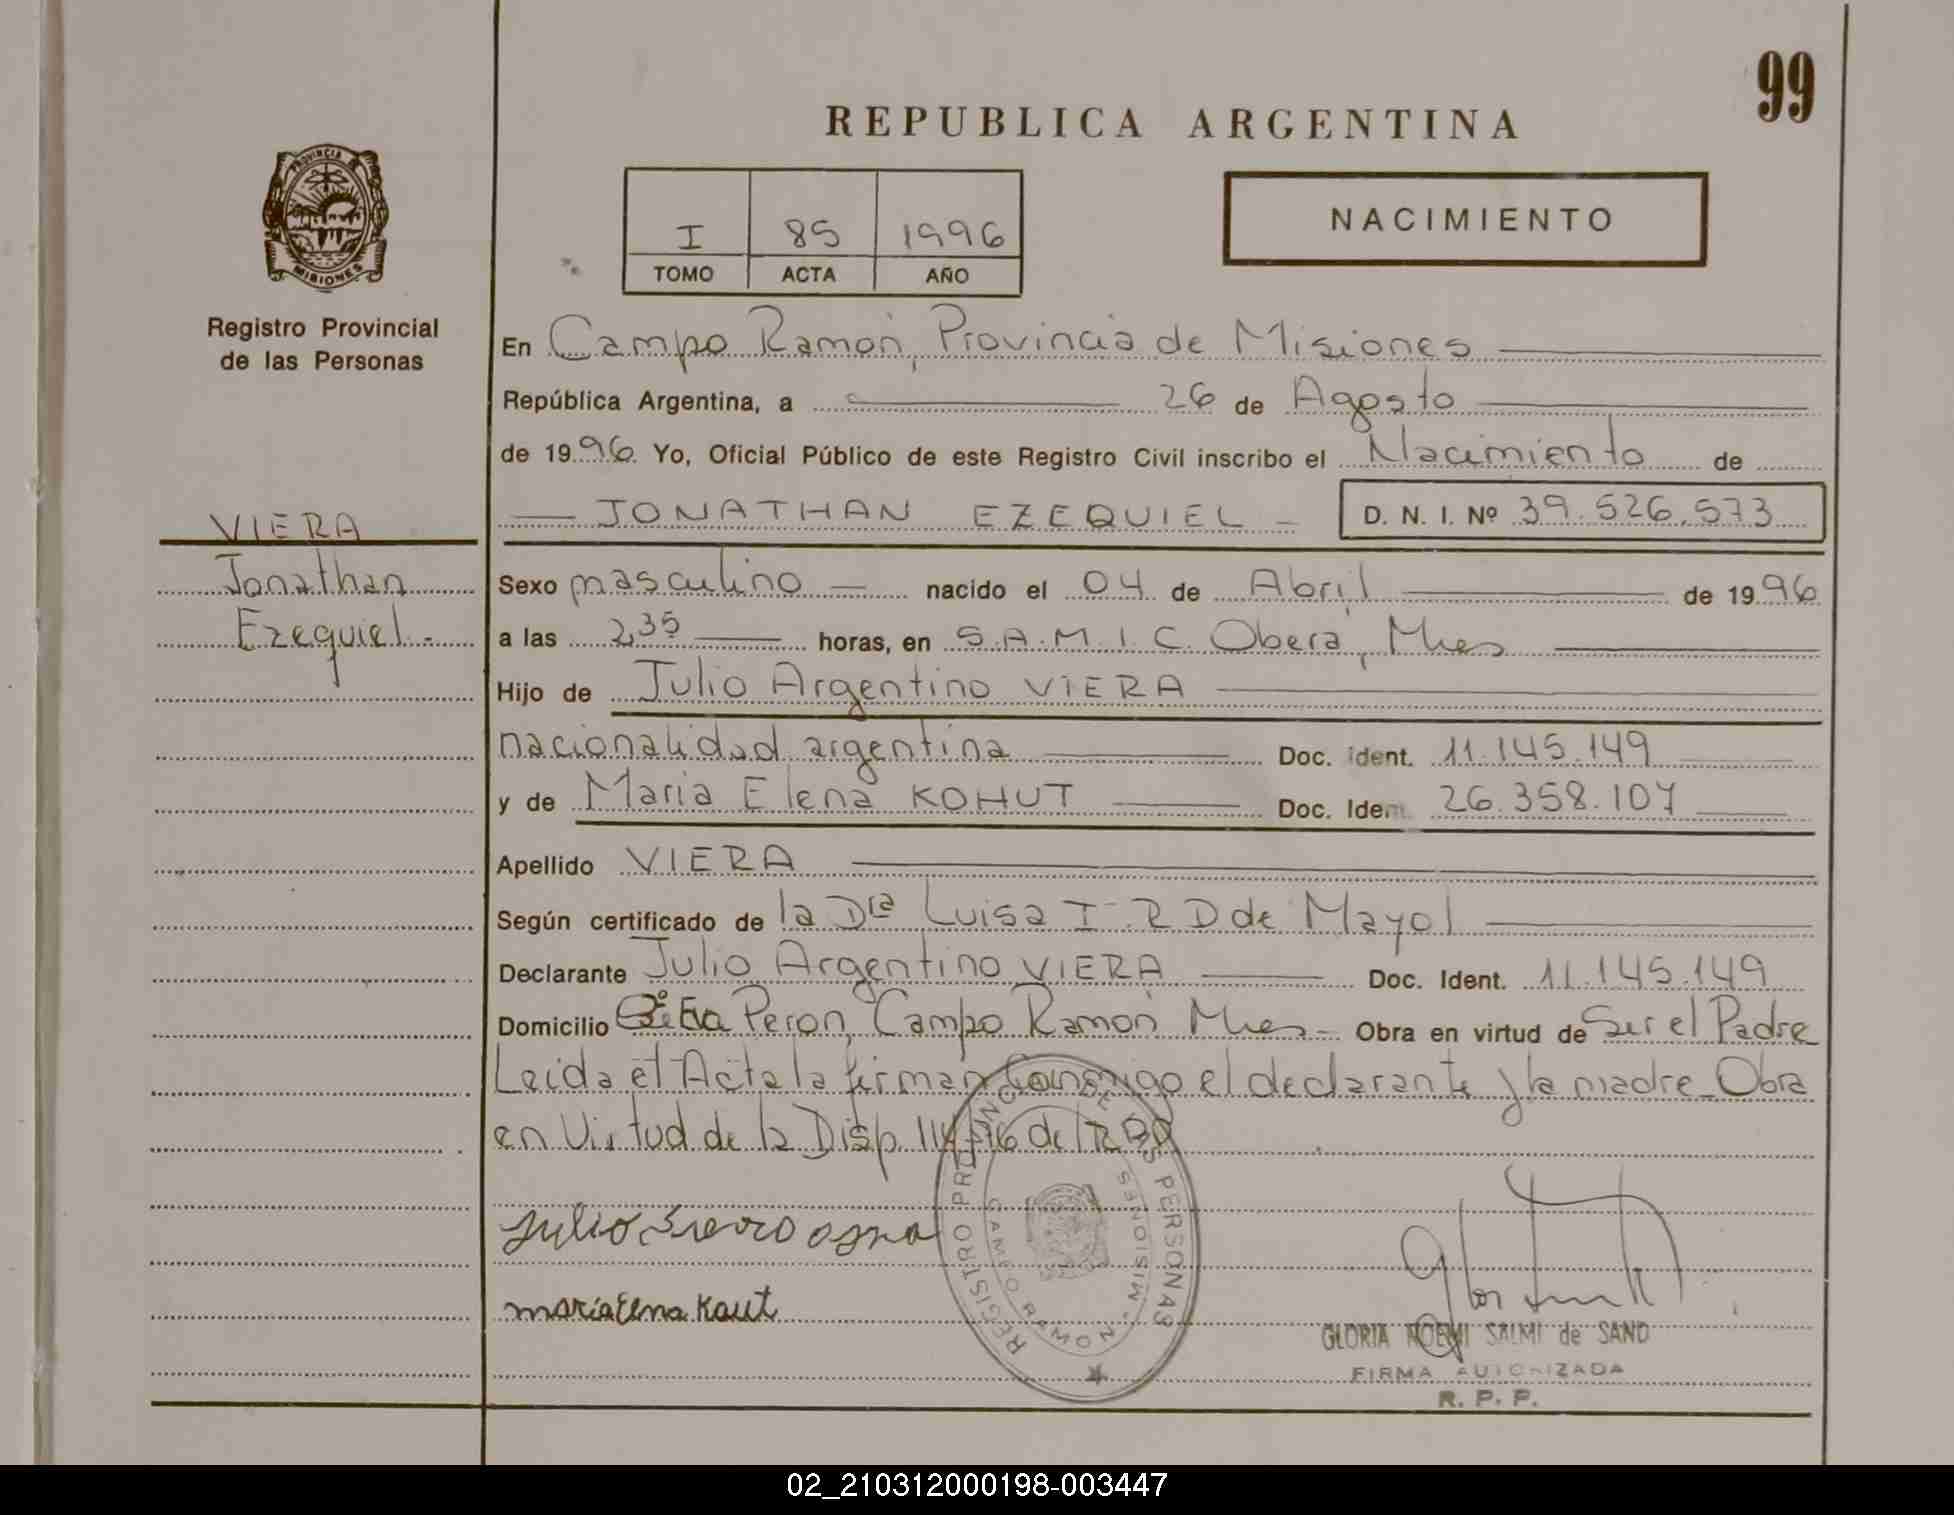 99
REPUBLICA ARGENTINA
PROVINCIA DE
MISIONES
Registro Provincial
de las Personas
I 85 1996
TOMO ACTA AÑO
NACIMIENTO
En Campo Ramón, Provincia de Misiones
República Argentina, a 26 de Agosto
de 1996 Yo, Oficial Público de este Registro Civil inscribo el Nacimiento de
JONATHAN EZEQUIEL D. N. I. Nº 39.526.573
VIERA
Jonathan
Ezequiel.-
Sexo masculino nacido el 04 de Abril de 1996
a las 2,35 horas, en S.A.M.I.C. Oberá, Mnes
Hijo de Julio Argentino VIERA
nacionalidad argentina Doc. Ident. 11.145.149
y de Maria Elena KOHUT Doc. Ident. 26.358.107
Apellido VIERA
Según certificado de la Dra Luisa I. R D de Mayol
Declarante Julio Argentino VIERA Doc. Ident. 11.145.149
Domicilio Bº Eva Peron, Campo Ramón Mnes- Obra en virtud de Ser el Padre
Leida el Acta la firman conmigo el declarante y la madre_ Obra
en Virtud de la Disp. 114/96 de
Julio
maria Elena Kaut
REGISTRO PROVINCIAL DE LAS PERSONAS
CAMPO RAMON - MISIONES
GLORIA NOEMI SALMI de SAND
FIRMA AUTORIZADA
R. P. P.
02_210312000198-003447